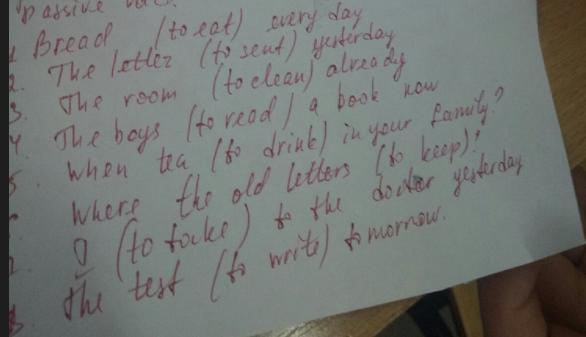 passive
1 Bread (to eat) every day
2. The letter (to sent) yesterday
3. The room (to clean) already
4. The boys (to read) a book now
5. When tea (to drink) in your family?
Where the old letters (to keep)?
7. I (to take) to the doctor yesterday
8. The test (to write) tomorrow.